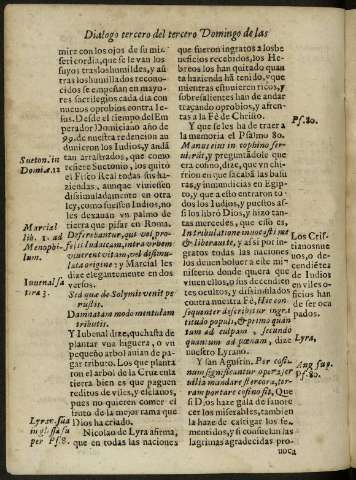 Dialogo tercero del tercero Domingo de las
mire con los ojos de su misericordia, que se le van los
suyos tras los humildes, y a
otras los humillados reconocidos
se empeñan en mayores
sacrilegios cada dia con
nuevos oprobios contra Iesus.
Desde el tiempo del Emperador
Domiciano año de
99. de nuestra redencion
dieron los Iudios, y andan
arrastrados, que como
refiere Suetonio, los quitò
el Fisco Real todas sus haziendas,
aunque viniessen
dissimuladamente en otra
ley, como fuessen Iudios, no
les dexauan vn palmo de
tierra que pisar en Roma.
Differebantur, qui vel professi
Iudaicam, intra vrbem
viuerent vitam, vel dissimulata
origine: y Marcial les
dize elegantemente en dos
versos.
Sed quæ de Solymis venit perustis.
Damnatam modo mentulam
tributis.
Y Iubenal dize, que hasta de
plantar vna higuera, o vn
pequeño arbol auian de pagar
tributo. Los que plantaron
el arbol de la Cruz en la
tierra bien es que paguen
reditos de viles, y esclauos,
pues no quieren comer el
fruto de la mejor rama que
Dios ha criado.
Nicolao de Lyra afirma,
que en todas las naciones
Sueton. in
Domi. 12
Marcial
lib. 1. ad
Menophilum.
Iuuenal sa
tira 3.
Lyra. sua
in glossa su
per Ps. 8.
que fueron ingratos a los beneficios
recebidos, los Hebreos
los han quitado quanta
hazienda hã tenido, y que
mientras estuuieren ricos, y
sobresalientes han de andar
traçando oprobios, y afrentas
a la Fè de Christo.
Y que se les ha de traer a
la memoria el Psalmo 80.
Manus eius in cophino seruierũt,
y preguntãdole que
era como, dize, que vn cofin
en que lleuauan la basura,
y las inmundicias en Egipto,
y que a esto entraron todos
los Iudios, y puestos assi
los librò Dios, y hizo tantas
mercedes, que esso es.
In tribulatione inuocasti me
& liberaui te, y assi por ingratos
todas las naciones
los deuen boluer a este ministerio
donde quiera que
viuen ellos, y sus decendientes
ocultos, y dissimulados
contra nuestra Fè, Hic consequenter
describitur ingratitudo
populi, & primo quantum
ad culpam, secundo
quantum ad pœnam, dize
nuestro Lyrano.
Y San Agustin. Per cofinum
significantur opera seruilia
mundare stercora, terram
portare cofino sit, Que
si Dios haze gala de fauorecer
los miserables, tambien
la haze de castigar los fementidos,
y como se consuelan las
lagrimas agradecidas pro-
uoca
Ps. 80.
Los Cristianos
nueuos, o decendiẽtes
de Iudios
en viles oficios
han de ser ocupados
Lyra,
Aug. sup.
Ps. 80.